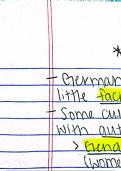 *
- German
little fac
- Some cu
with aut
> Gend
(wome